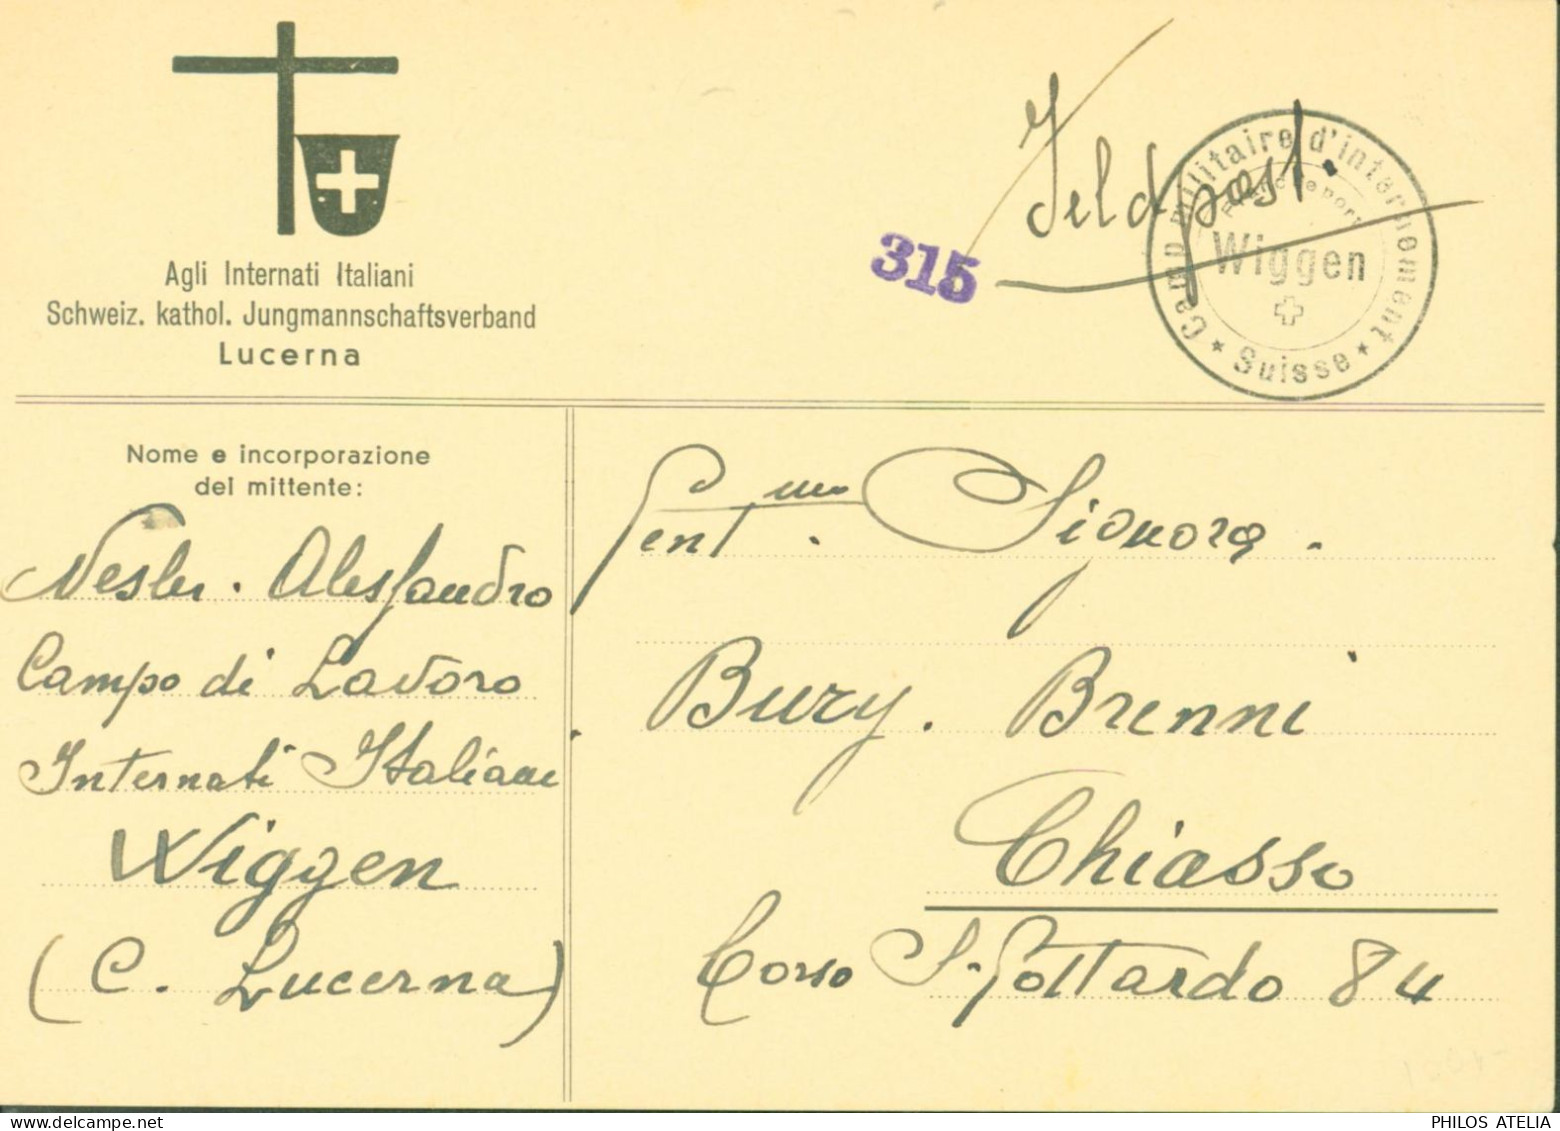 Agli Internati Italiani
Schweiz. kathol. Jungmannschaftsverband
Lucerna
Feldpost.
315
Camp militaire d'internement
Franc de port
Wiggen
Suisse
Nome e incorporazione
del mittente:
Nesler. Alessandro
Campo di Lavoro
Internati Italiani
Wiggen
(C. Lucerna)
Gent.ma Signora.
Bury. Brenni
Chiasso
Corso S. Gottardo 84
PHILOS ATELIA